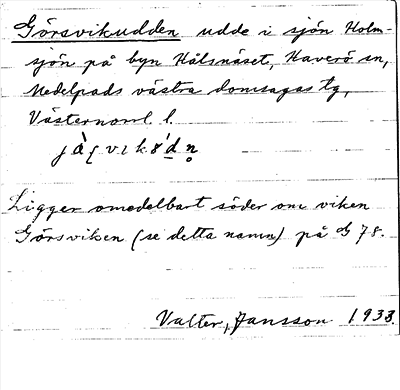 Görsvikudden udde i sjön Holm-
sjön på byn Hälsnäset, Haverö sn,
Medelpads västra domsagas tg,
Västernorrl. l.
Ligger omedelbart söder om viken
Görsviken (se detta namn) på G 78.
Valter, Jansson 1933.